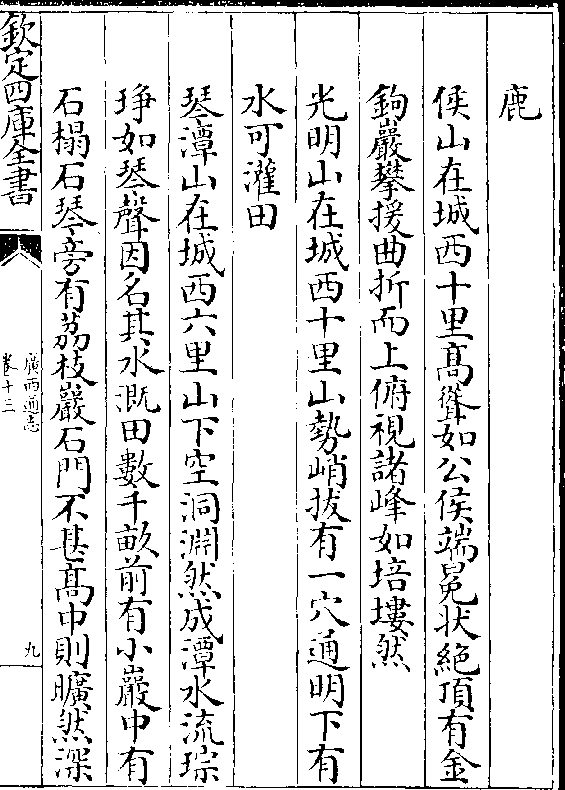 鹿
侯山在城西十里髙聳如公侯端冕状絶頂有金
鉤巖攀援曲折而上俯視諸峰如培塿然
光明山在城西十里山勢峭拔有一穴通明下有
水可灌田
琴潭山在城西六里山下空洞淵然成潭水流琮
琤如琴聲因名其水溉田數千畝前有小巖中有
石榻石琴旁有荔枝巖石門不甚髙中則曠然深
欽定四庫全書
廣西通志
卷十三
九